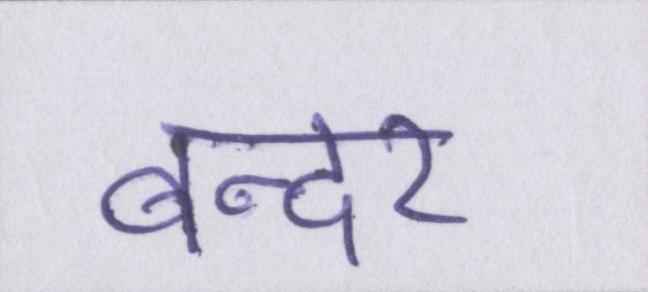 बन्दर